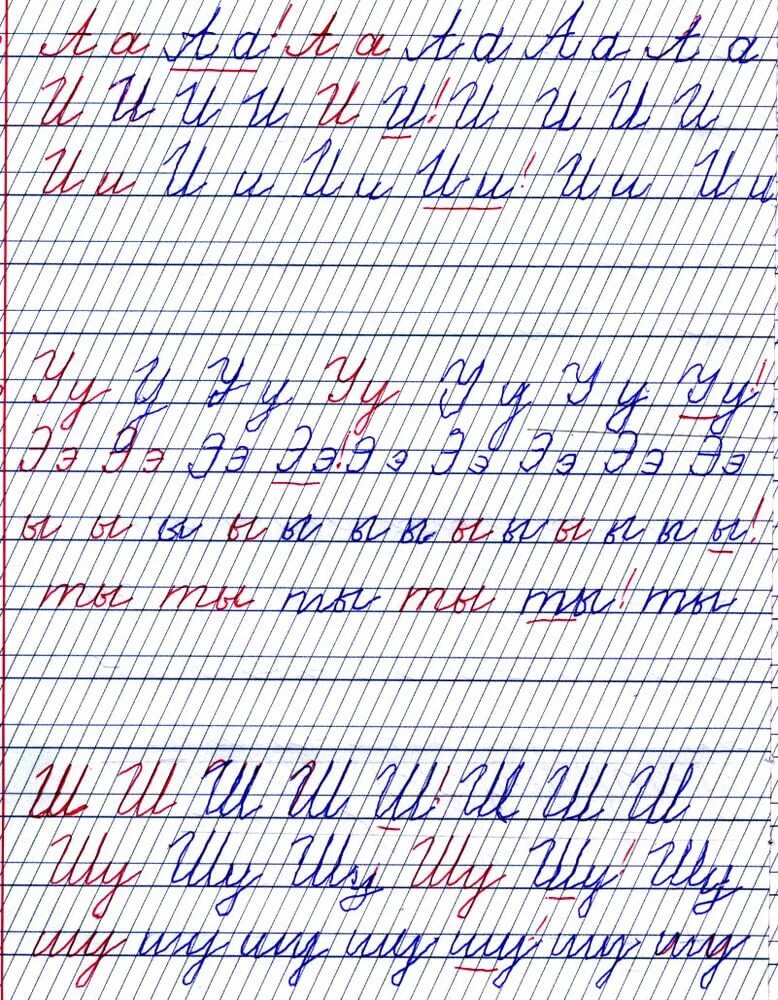 Аа Аа! Аа Аа Аа Аа
И И И И И И! И И И И
Ии Ии Ии Ии! Ии Ии
Уу У Уу Уу Уу Уу Уу!
Ээ Ээ Ээ Ээ! Ээ Ээ Ээ Ээ Ээ
ы ы ы ы ы ы ы ы ы ы ы ы ы!
ты ты ты ты ты! ты
Ш Ш Ш Ш Ш! Ш Ш Ш
Шу Шу Шу Шу Шу! Шу
шу шу шу шу шу! шу шу